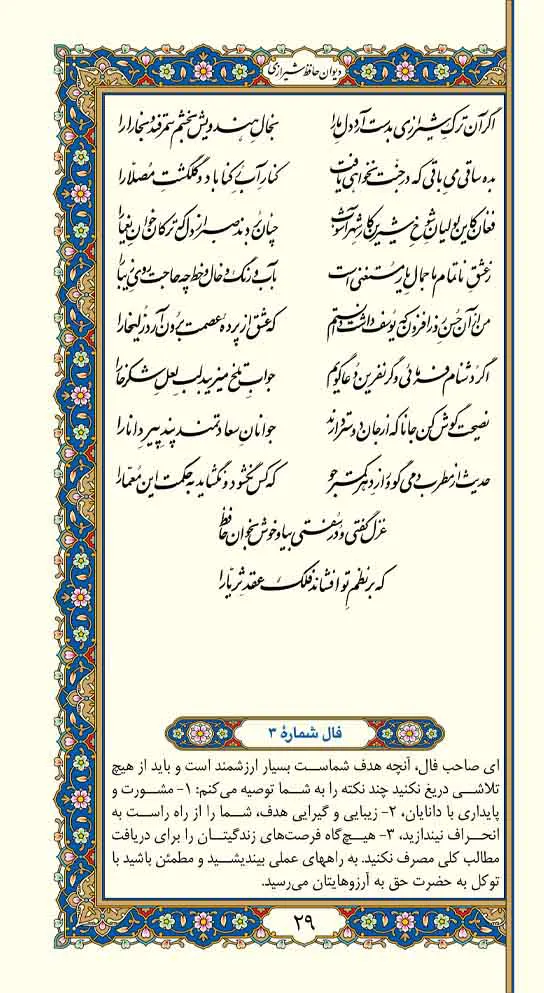 دیوان حافظ شیرازی
اگر آن ترک شیرازی بدست آرد دل ما را بخال هندویش بخشم سمرقند و بخارا را
بده ساقی می باقی که در جنّت نخواهی یافت کنار آب رکناباد و گلگشت مُصلّا را
فغان کاین لولیان شوخ شیرین کار شهرآشوب چنان بردند صبر از دل که ترکان خوان یغما را
ز عشق ناتمام ما جمال یار مستغنی است بآب و رنگ و خال و خط چه حاجت روی زیبا را
من از آن حسن روزافزون که یوسف داشت دانستم که عشق از پردهٔ عصمت برون آرد زلیخا را
اگر دشنام فرمائی و گر نفرین دعا گویم جواب تلخ میزیبد لب لعل شکرخا را
نصیحت گوش کن جانا که از جان دوستر دارند جوانان سعادتمند پند پیر دانا را
حدیث از مطرب و می گو و راز دهر کمتر جو که کس نگشود و نگشاید به حکمت این معمّا را
غزل گفتی و دُر سُفتی بیا و خوش بخوان حافظ
که بر نظم تو افشاند فلک عقد ثریّا را
فال شمارهٔ ۳
ای صاحب فال، آنچه هدف شماست بسیار ارزشمند است و باید از هیچ
تلاشی دریغ نکنید چند نکته را به شما توصیه می‌کنم: ۱- مشورت و
پایداری با دانایان، ۲- زیبایی و گیرایی هدف، شما را از راه راست به
انحراف نیندازید، ۳- هیچ‌گاه فرصت‌های زندگیتان را برای دریافت
مطالب کلی مصرف نکنید. به راههای عملی بیندیشید و مطمئن باشید با
توکل به حضرت حق به آرزوهایتان می‌رسید.
۲۹